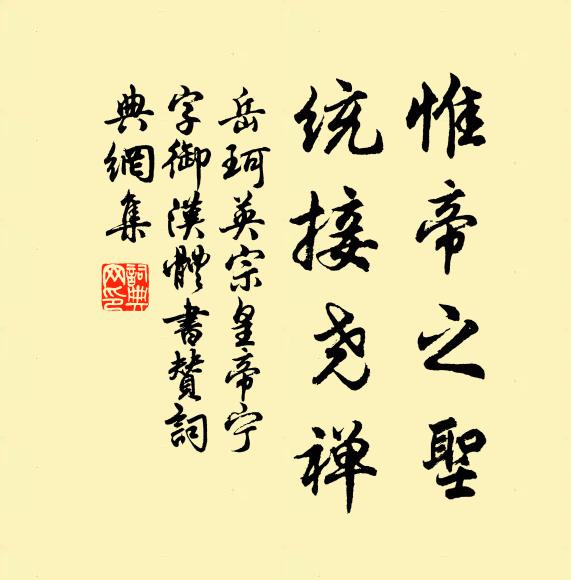 惟帝之聖
统接尧禅
岳珂英宗皇帝宁
字御漢體書賛詞
典網集
詞典网印